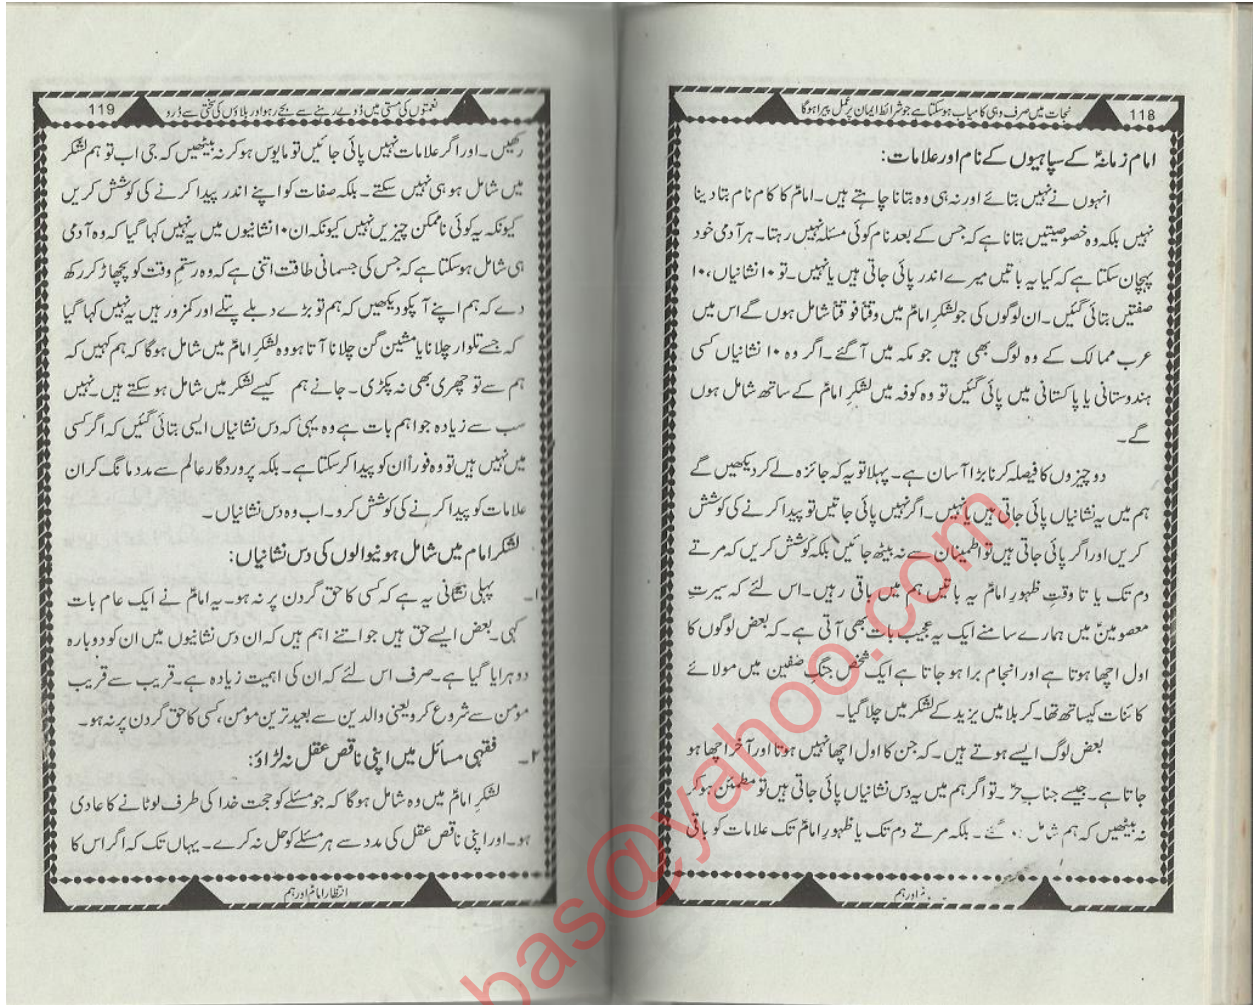 118
نجات میں صرف وہی کامیاب ہوسکتا ہے جو شرائط ایمان پر عمل پیرا ہوگا
امام زمانہؑ کے سپاہیوں کے نام اور علامات:
انہوں نے نہیں بتائے اور نہ ہی وہ بتانا چاہتے ہیں۔ امامؑ کا کام نام بتا دینا
نہیں بلکہ وہ خصوصیتیں بتانا ہے کہ جس کے بعد نام کوئی مسئلہ نہیں رہتا۔ ہر آدمی خود
پہچان سکتا ہے کہ کیا یہ باتیں میرے اندر پائی جاتی ہیں یا نہیں۔ تو ۱۰ نشانیاں، ۱۰
صفتیں بتائی گئیں۔ ان لوگوں کی جو لشکرِ امامؑ میں وقتاً فوقتاً شامل ہوں گے اس میں
عرب ممالک کے وہ لوگ بھی ہیں جو مکہ میں آگئے۔ اگر وہ ۱۰ نشانیاں کسی
ہندوستانی یا پاکستانی میں پائی گئیں تو وہ کوفہ میں لشکرِ امامؑ کے ساتھ شامل ہوں
گے۔
دو چیزوں کا فیصلہ کرنا بڑا آسان ہے۔ پہلا تو یہ کہ جائزہ لے کر دیکھیں گے
ہم میں یہ نشانیاں پائی جاتی ہیں یا نہیں۔ اگر نہیں پائی جاتیں تو پیدا کرنے کی کوشش
کریں اور اگر پائی جاتی ہیں تو اطمینان سے نہ بیٹھ جائیں بلکہ کوشش کریں کہ مرتے
دم تک یا تا وقتِ ظہورِ امامؑ یہ باتیں ہم میں باقی رہیں۔ اس لئے کہ سیرتِ
معصومینؑ میں ہمارے سامنے ایک یہ عجیب بات بھی آتی ہے۔ کہ بعض لوگوں کا
اول اچھا ہوتا ہے اور انجام برا ہو جاتا ہے ایک شخص جنگِ صفین میں مولائے
کائنات کیساتھ تھا۔ کربلا میں یزید کے لشکر میں چلا گیا۔
بعض لوگ ایسے ہوتے ہیں۔ کہ جن کا اول اچھا نہیں ہوتا اور آخر اچھا ہو
جاتا ہے۔ جیسے جناب حرؑ۔ تو اگر ہم میں یہ دس نشانیاں پائی جاتی ہیں تو مطمئن ہو کر
نہ بیٹھیں کہ ہم شامل ہو گئے۔ بلکہ مرتے دم تک یا ظہورِ امامؑ تک علامات کو باقی
اور ہم
119
نعمتوں کی مستی میں ڈوبے رہنے سے بچے رہو اور بلاؤں کی سختی سے ڈرو
رکھیں۔ اور اگر علامات نہیں پائی جائیں تو مایوس ہو کر نہ بیٹھیں کہ جی اب تو ہم لشکر
میں شامل ہو ہی نہیں سکتے۔ بلکہ صفات کو اپنے اندر پیدا کرنے کی کوشش کریں
کیونکہ یہ کوئی ناممکن چیزیں نہیں کیونکہ ان ۱۰ نشانیوں میں یہ نہیں کہا گیا کہ وہ آدمی
ہی شامل ہوسکتا ہے کہ جس کی جسمانی طاقت اتنی ہے کہ وہ رستمِ وقت کو پچھاڑ کر رکھ
دے کہ ہم اپنے آپکو دیکھیں کہ ہم تو بڑے دبلے پتلے اور کمزور ہیں یہ نہیں کہا گیا
کہ جسے تلوار چلانا یا مشین گن چلانا آتا ہو وہ لشکرِ امامؑ میں شامل ہوگا کہ ہم کہیں کہ
ہم سے تو چھری بھی نہ پکڑی۔ جانے ہم کیسے لشکر میں شامل ہو سکتے ہیں۔ نہیں
سب سے زیادہ جو اہم بات ہے وہ یہی کہ دس نشانیاں ایسی بتائی گئیں کہ اگر کسی
میں نہیں ہیں تو وہ فوراً ان کو پیدا کر سکتا ہے۔ بلکہ پروردگار عالم سے مدد مانگ کر ان
علامات کو پیدا کرنے کی کوشش کرو۔ اب وہ دس نشانیاں۔
لشکر امام میں شامل ہونیوالوں کی دس نشانیاں:
۱۔ پہلی نشانی یہ ہے کہ کسی کا حق گردن پر نہ ہو۔ یہ امامؑ نے ایک عام بات
کہی۔ بعض ایسے حق ہیں جو اتنے اہم ہیں کہ ان دس نشانیوں میں ان کو دوبارہ
دوہرایا گیا ہے۔ صرف اس لئے کہ ان کی اہمیت زیادہ ہے۔ قریب سے قریب
مؤمن سے شروع کرو یعنی والدین سے بعید ترین مؤمن، کسی کا حق گردن پر نہ ہو۔
۲۔ فقہی مسائل میں اپنی ناقص عقل نہ لڑاؤ:
لشکرِ امامؑ میں وہ شامل ہوگا کہ جو مسئلے کو حجت خدا کی طرف لوٹانے کا عادی
ہو۔ اور اپنی ناقص عقل کی مدد سے ہر مسئلے کو حل نہ کرے۔ یہاں تک کہ اگر اس کا
انتظار امامؑ اور ہم
bas@yahoo.com